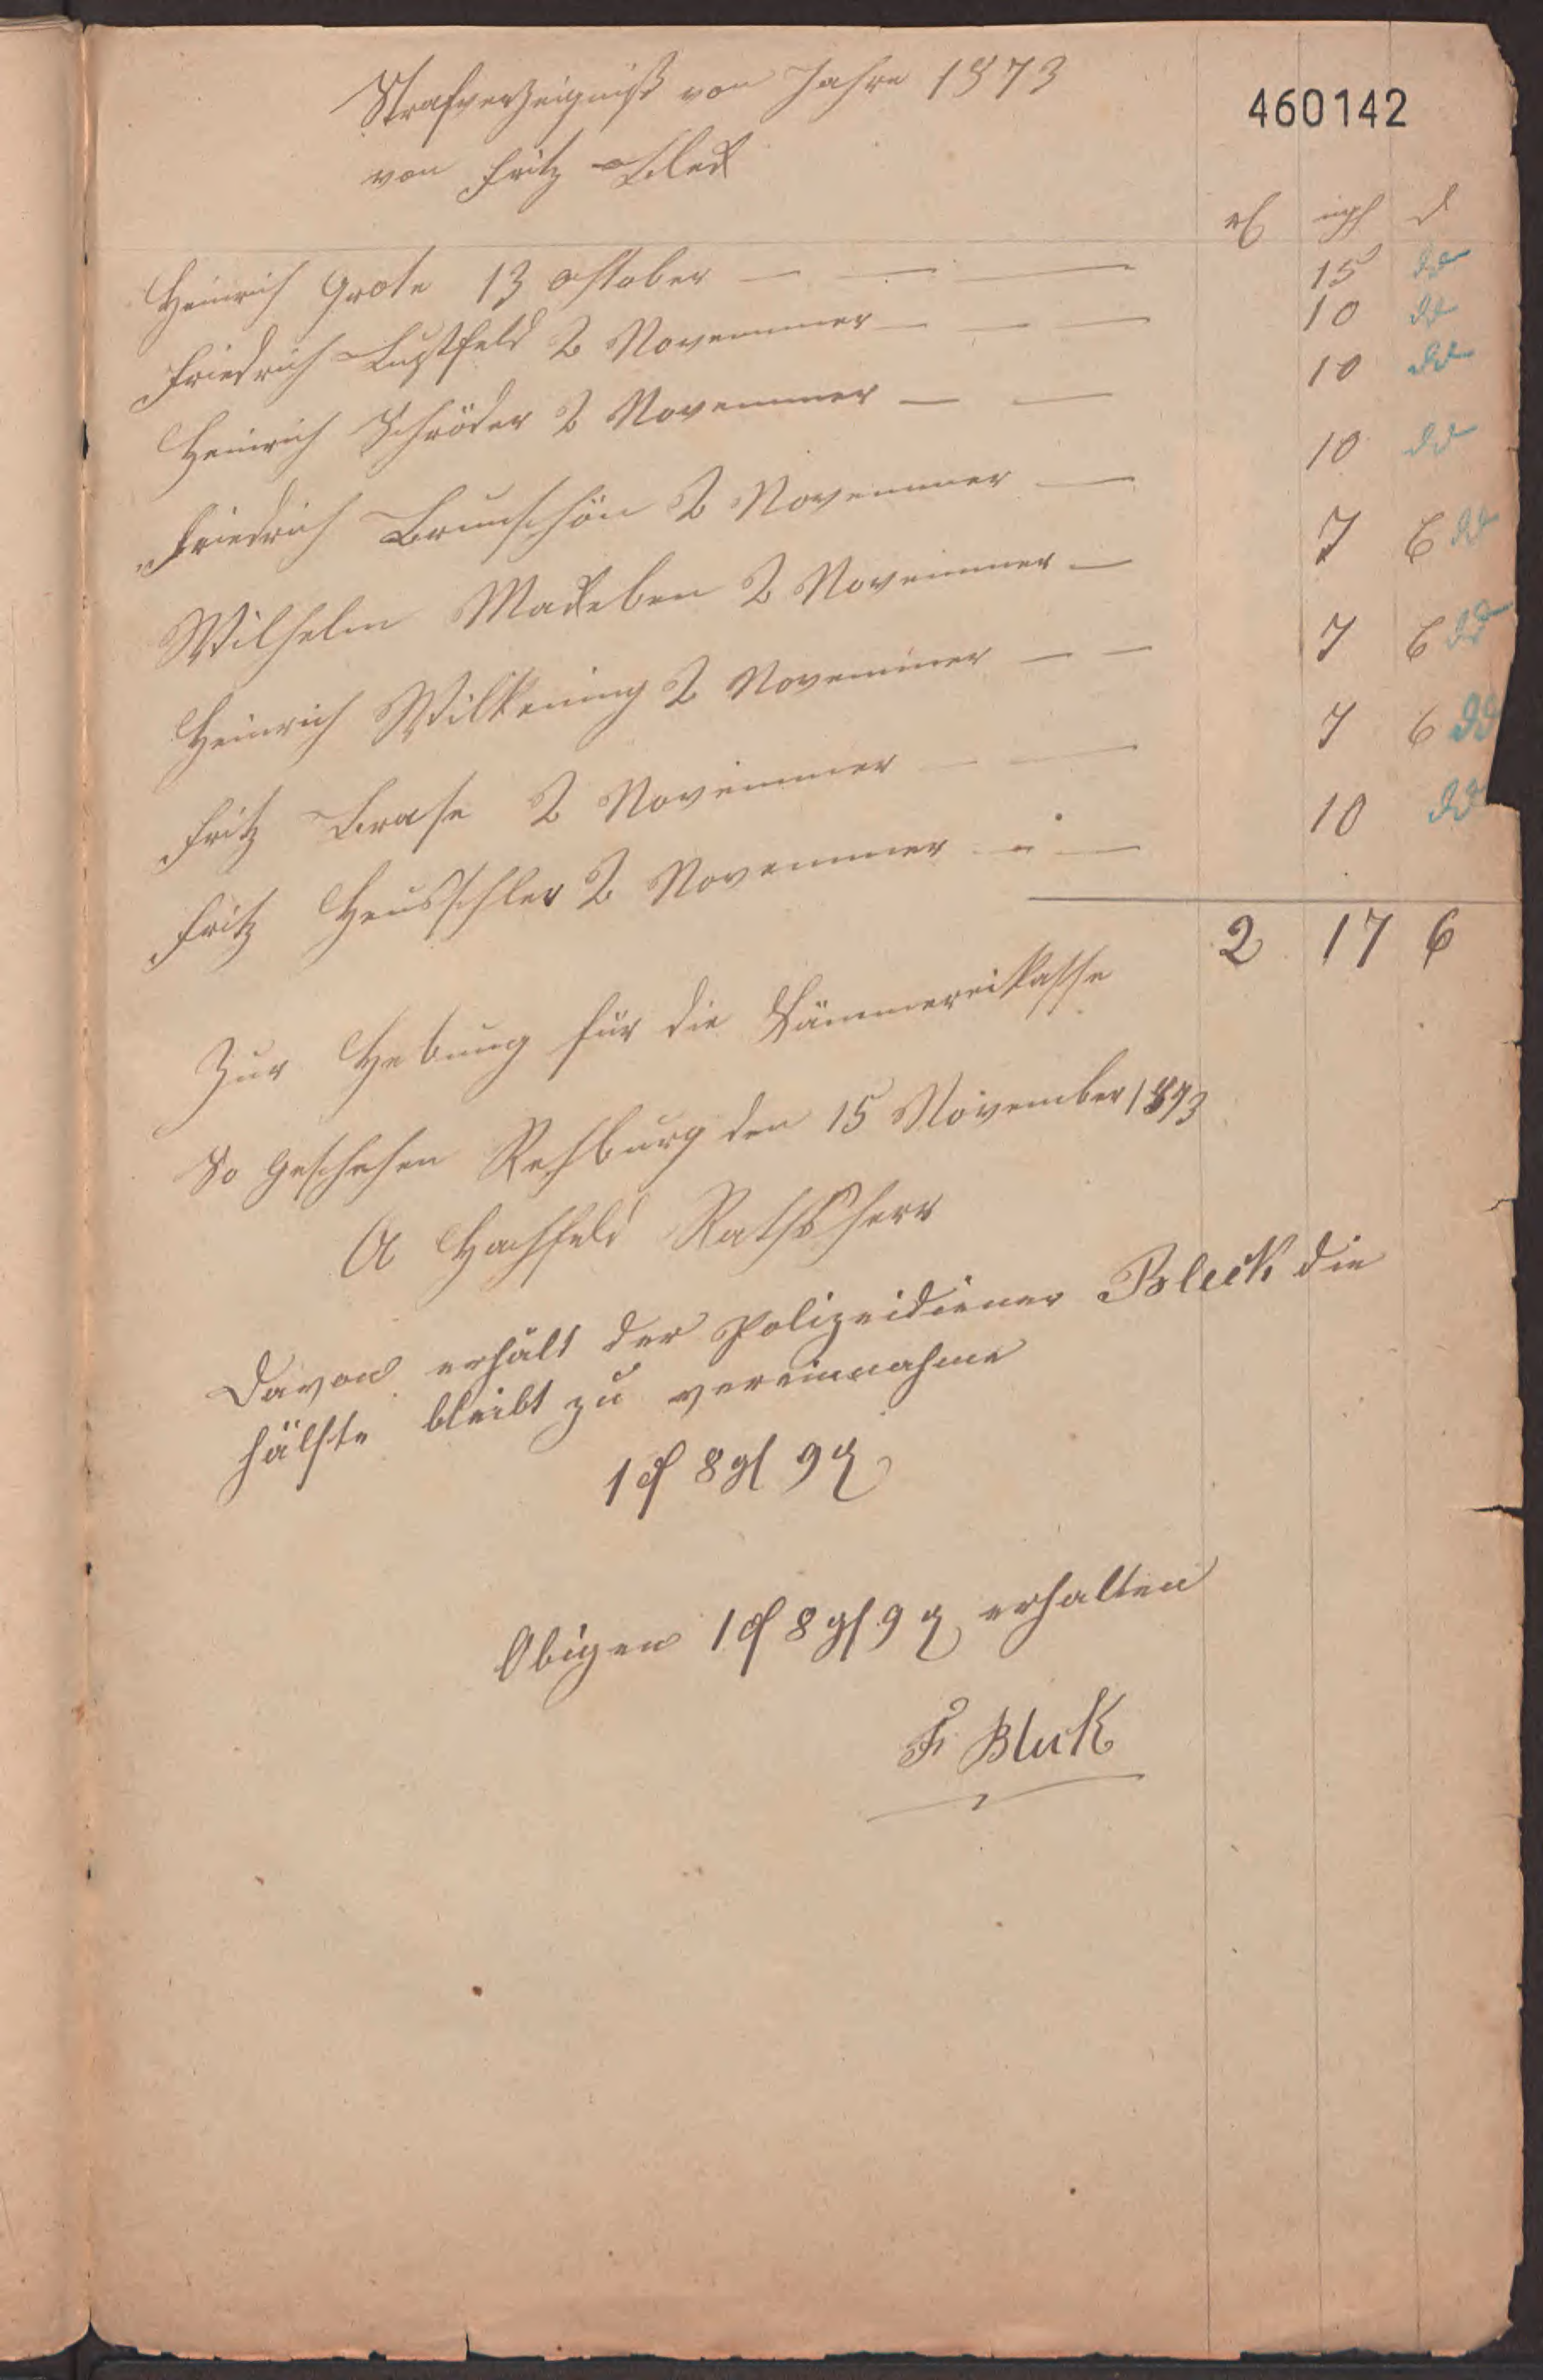 Strafverzeigniß von Jahre 1873
460142
von Fritz Bleck
rℓ ngl d
Heinrich Grote 13 October — — — 15 dd
Friedrich Lustfeld 2 Novemmer — — — 10 dd
Heinrich Schröder 2 Novemmer — — 10 dd
Friedrich Brunschön 2 Novemmer — 10 dd
Wilhelm Madeben 2 Novemmer — 7 6 dd
Heinrich Wilkening 2 Novemmer — — 7 6 dd
Fritz Brase 2 Novemmer — — 7 6 dd
Fritz 2 Novemmer — — 10 dd
2 17 6
Zur Hebung für die Kämmereikasse
So Geschehen Rehburg den 15 November 1873
A Hachfeld Rathsherr
Davon erhält der Polizeidiener Bleck die
hälfte bleibt zu vereinnahme
1 rℓ 8 gl 9 d
Obigen 1 rℓ 8 gl 9 d erhalten
F. Bleck